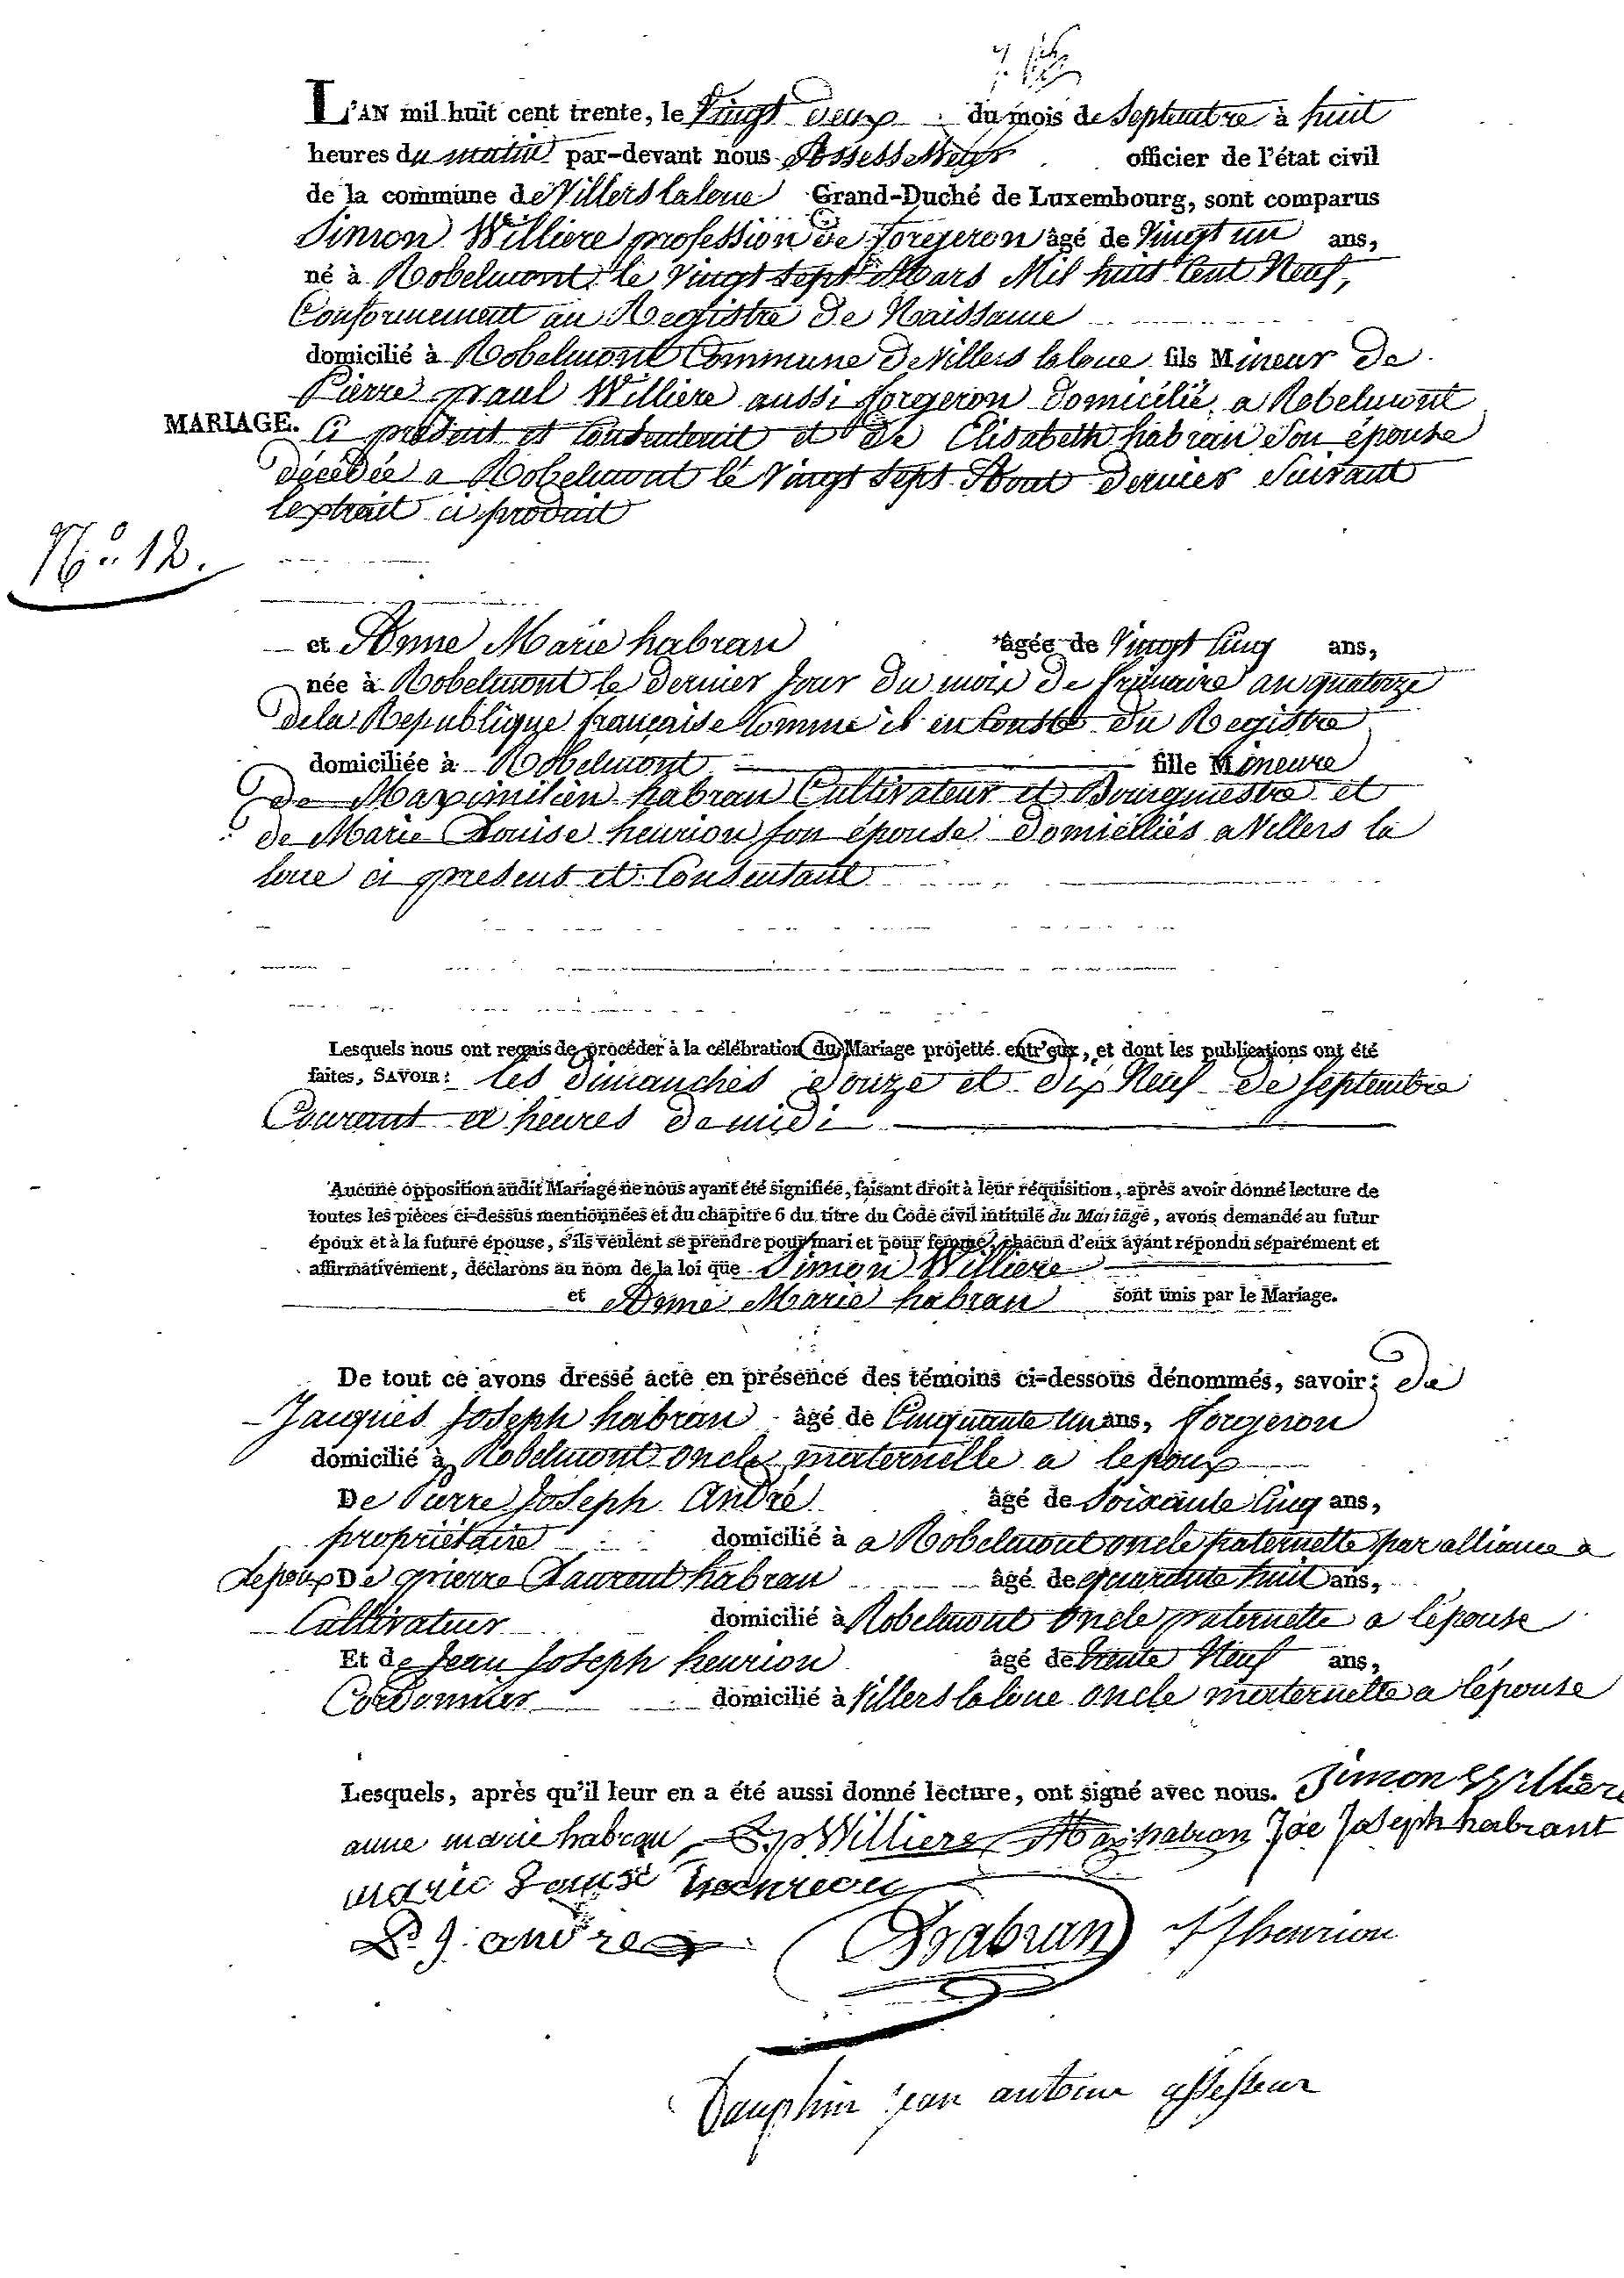 L'AN mil huit cent trente, le Vingt deux du mois de Septembre à huit
heures du matin par-devant nous Assesseur officier de l'état civil
de la commune de Villers laloue Grand-Duché de Luxembourg, sont comparus
Simon Williere profession de forgeron âgé de Vingt un ans,
né à Robelmont le Vingt Sept Mars Mil huit Cent Neuf,
Conformement au Registre de Naissance
domicilié à Robelmont Commune de Villers laloue fils Mineur de
Pierre paul Williere aussi forgeron domicilié a Robelmont
MARIAGE. Ci présent et Consentent et de Elisabeth habran Son épouse
décédée a Robelmont le Vingt Sept Aout dernier Suivant
lextrait ci produit
N.o 12.
et Anne Marie habran âgée de Vingt Cinq ans,
née à Robelmont le dernier Jour du mois de frimaire an quatorze
dela Republique française Comme il en Conste du Registre
domiciliée à Robelmont fille Mineure
de Maximilien habran Cultivateur et Bourgmestre et
de Marie Louise henrion son épouse domiciliés a Villers la
loue ci presens et Consentant
Lesquels nous ont requis de procéder à la célébration du Mariage projetté entr'eux, et dont les publications ont été
faites, SAVOIR: les dimanches douze et dix Neuf de Septembre
Courant a heures de midi
Aucune opposition audit Mariage ne nous ayant été signifiée, faisant droit à leur réquisition, après avoir donné lecture de
toutes les pièces ci-dessus mentionnées et du chapitre 6 du titre du Code civil intitulé du Mariage, avons demandé au futur
époux et à la future épouse, s'ils veulent se prendre pour mari et pour femme, chacun d'eux ayant répondu séparément et
affirmativement, déclarons au nom de la loi que Simon Williere
et Anne Marie habran sont unis par le Mariage.
De tout ce avons dressé acte en présence des témoins ci-dessous dénommés, savoir: de
Jacques Joseph habran âgé de Cinquante un ans, forgeron
domicilié à Robelmont oncle maternelle a lepoux
De Pierre Joseph André âgé de Soixante Cinq ans,
propriétaire domicilié à a Robelmont oncle paternelle par alliance a
Lepoux De pierre Laurent habran âgé de quarante huit ans,
Cultivateur domicilié à Robelmont oncle paternelle a l'épouse
Et de Jean Joseph henrion âgé de trente Neuf ans,
Cordonnier domicilié à Villers laloue oncle maternelle a l'épouse
Lesquels, après qu'il leur en a été aussi donné lecture, ont signé avec nous. Simon Williere
anne marie habran P. p Williere Max habran Jac Joseph habrant
marie Louise henrion
P. J. andre habran J J henrion
Dauphin jean antoine assesseur